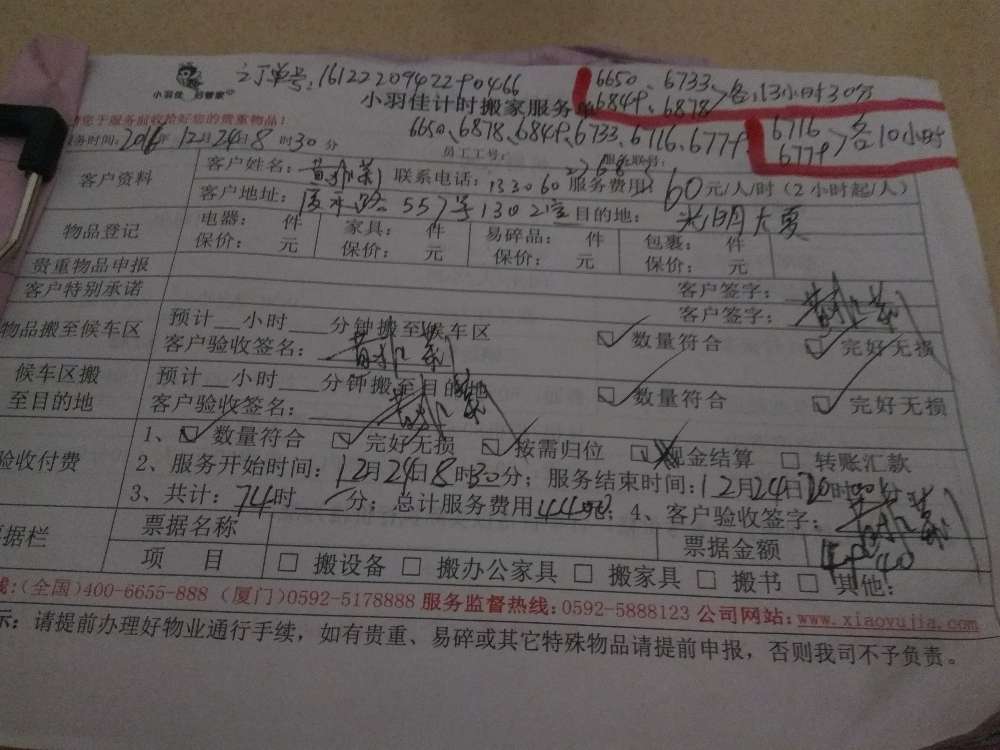 订单号:161222094229 0466
6650、6733
6849、6878 各:13小时30分
小羽佳 好管家
小羽佳计时搬家服务单
您于服务前收拾好您的贵重物品!
6650、6878、6849、6733、6716、6779
6716
6779 各10小时
服务时间:2016年12月24日8时30分 员工工号: 服务联号:
客户资料 客户姓名: 联系电话:13306 服务费用:60元/人/时(2小时起/人)
客户地址: 557号1302室 目的地:光明大厦
物品登记 电器: 件 家具: 件 易碎品: 件 包裹: 件
保价: 元 保价: 元 保价: 元 保价: 元
贵重物品申报 客户签字:
客户特别承诺 客户签字:
物品搬至候车区 预计__小时__分钟搬至候车区 数量符合 完好无损
客户验收签名:
候车区搬至目的地 预计__小时__分钟搬至目的地 数量符合 完好无损
客户验收签名:
验收付费 1、数量符合 完好无损 按需归位 现金结算 转账汇款
2、服务开始时间:12月24日8时30分;服务结束时间:12月24日
3、共计:74时 分;总计服务费用 4440;4、客户验收签字:
票据栏 票据名称 票据金额 4440
项 目 搬设备 搬办公家具 搬家具 搬书 其他:
线:(全国)400-6655-888 (厦门)0592-5178888 服务监督热线:0592-5888123 公司网站:www.xiaoyujia.com
示:请提前办理好物业通行手续,如有贵重、易碎或其它特殊物品请提前申报,否则我司不予负责。